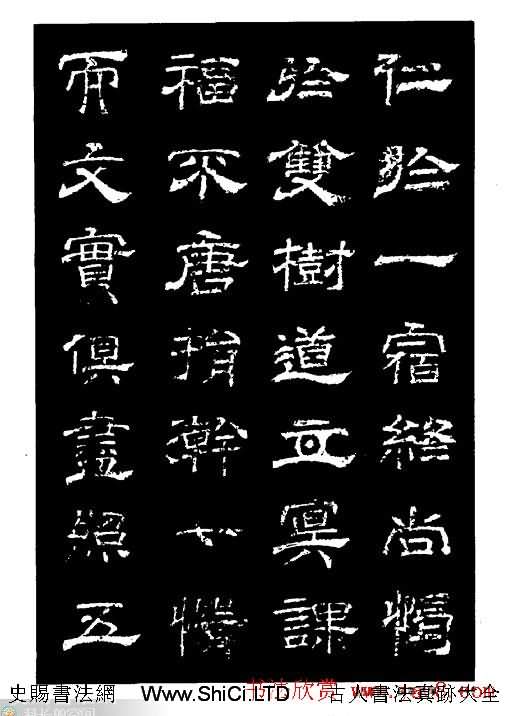 仁於一宿尚
於雙樹道立冥課
福不唐捐幹
而文實俱盡照五
书法欣赏
史賜書法網 www.ShiCi.LTD 古人書法真跡大全